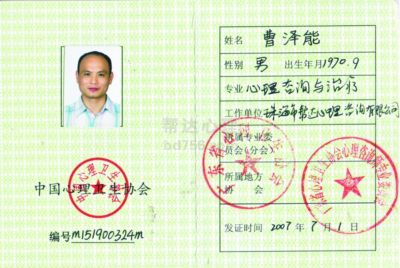 姓名 曹泽能
性别 男 出生年月1970.9
专业 心理咨询与治疗
工作单位 珠海市帮达心理咨询有限公司
所属专业委
员会(分会)
所属地方
协会
发证时间 2007年7月1日
中国心理卫生协会
编号m151900324m
中国心理卫生协会